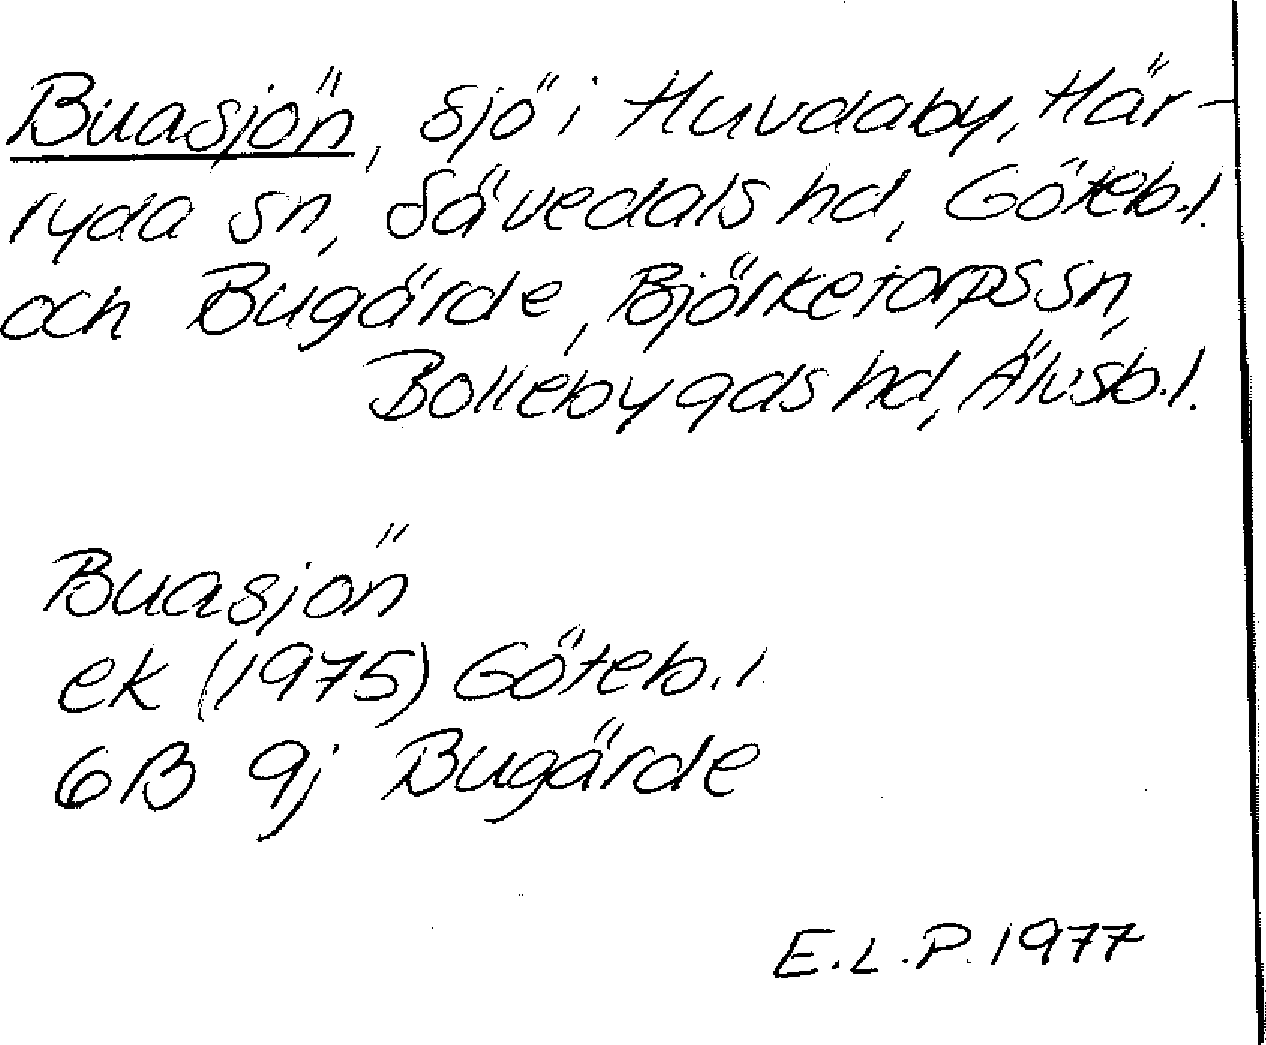 Buasjön, sjö i Huvdaby, Här-
ryda sn, Sävedals hd, Göteb.l.
och Bugärde, Björketorps sn,
Bollebygds hd, Älvsb.l.
Buasjön
ek (1975) Göteb.l
6B 9j Bugärde
E.L.P. 1977